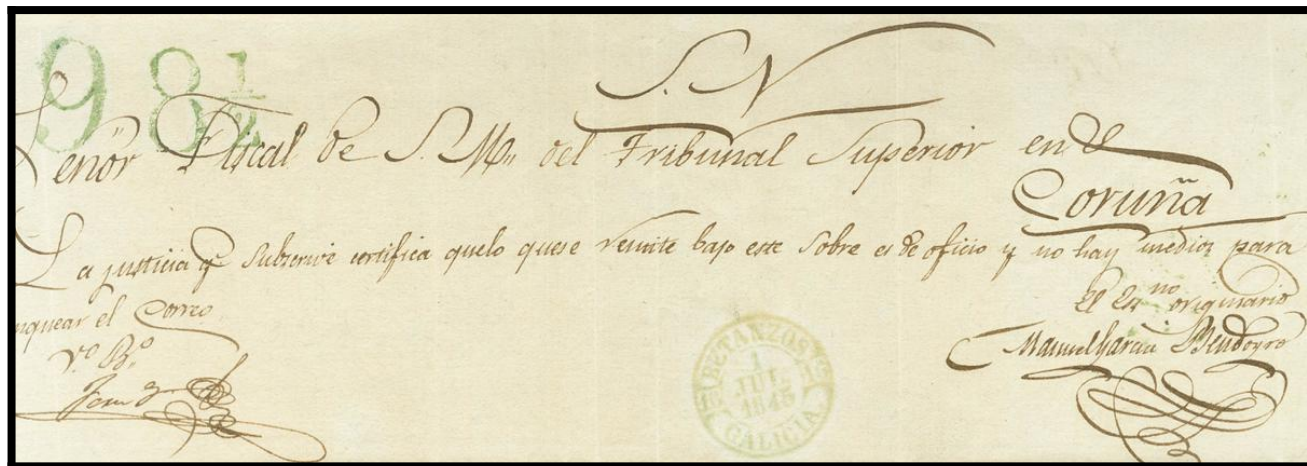 9 8 1/2
S. N
Señor Fiscal de S. M. del Tribunal Superior en la
Coruña
La justicia q Subscrive certifica quelo quese remite bajo este Sobre es de oficio y no hay medios para
nquear el Correo
El Esno originario
Vo Bo
Manuel Garcia
BETANZOS
1
JUL.
1845
GALICIA